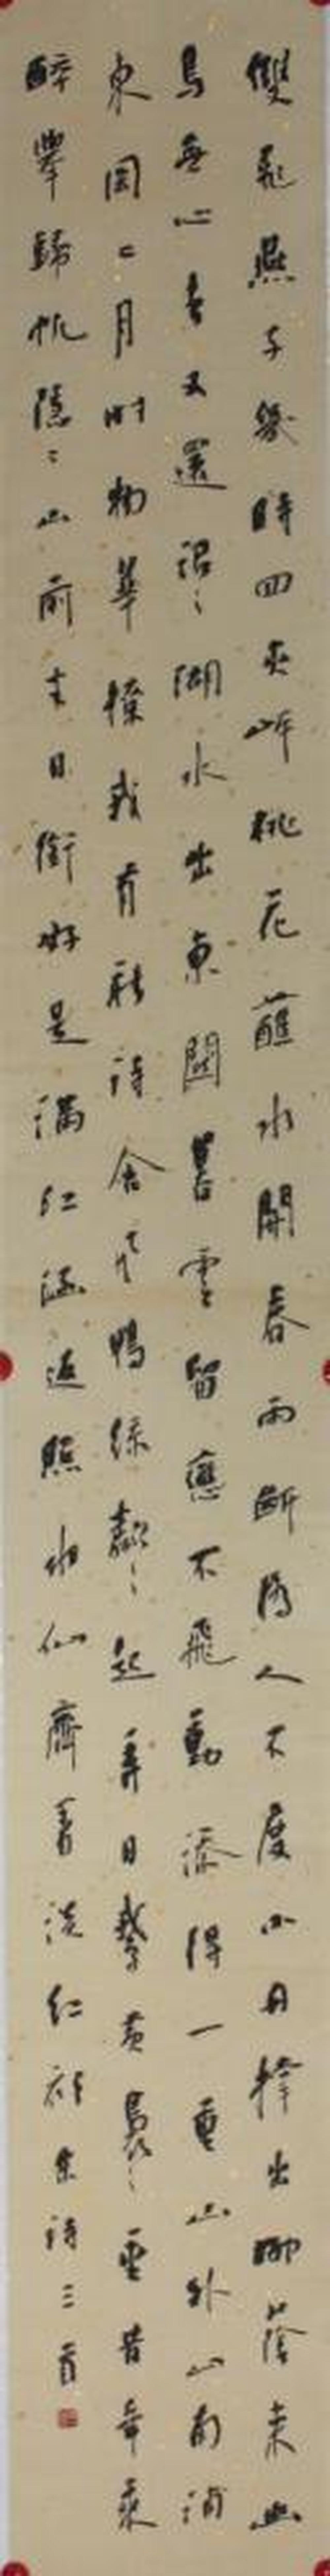 雙飛燕子幾時回夾岸桃花蘸水開春雨斷橋人不度小舟撐出柳蔭來幽
鳥無心去又還迢〻湖水出東關暮雲留戀不飛動添得一重山外山南浦
東岡二月時物華撩我有新詩含風鴨綠粼〻起弄日鵝黃裊〻垂昔年乘
醉舉歸帆隱〻山前半日銜好是滿江涵返照水仙齊著淡紅衫宋詩三首